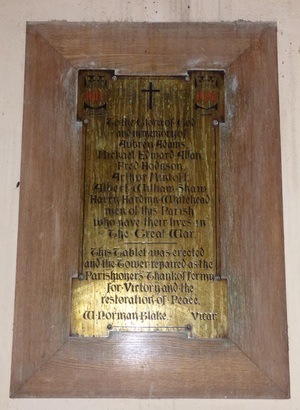 To the Glory of God
and in memory of
Aubrey Adams
Michael Edward Allan
Fred Hodgson
Arthur
Albert William Shaw
Harry Harding Whitehead
men of this Parish
who gave their lives in
The Great War.
This Tablet was erected
and the Tower repaired as the
Parishioners Thankoffering
for Victory and the
restoration of Peace.
W. Norman Blake. Vicar.